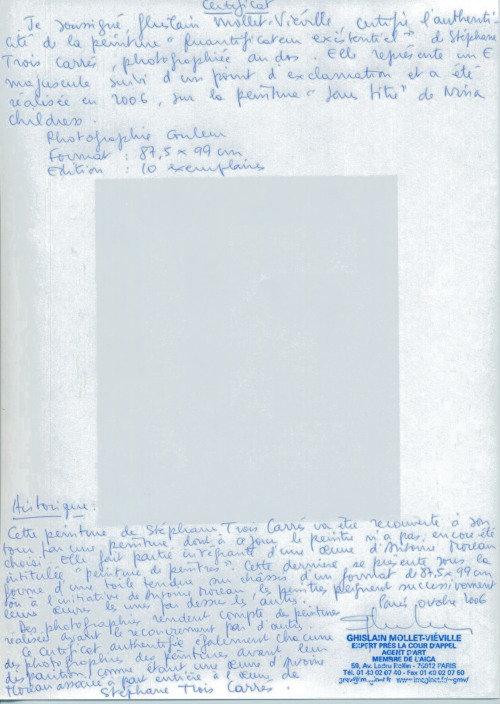 Certificat
Je soussigné Ghislain Mollet-Viéville certifie l'authenti
cité de la peinture "Quantificateur existentiel" de Stéphane
Trois Carrés, photographiée au dos. Elle représente un E
majuscule suivi d'un point d'exclamation et a été
réalisée en 2006, sur la peinture "Sans titre" de Nina
Childress.
Photographie Couleur
Format : 87,5 x 99 cm
Edition : 10 exemplaires
Historique :
Cette peinture de Stéphane Trois Carrés va être recouverte à son
tour par une peinture dont à ce jour le peintre n'a pas encore été
choisi. Elle fait partie intégrante d'une œuvre d'Antoine Moreau
intitulée "peinture de peintres". Cette dernière se présente sous la
forme d'une toile tendue sur châssis d'un format de 87,5 x 99 cm
où à l'initiative de Antoine Moreau, les peintres peignent successivement
leurs œuvres les unes par dessus les autres.
Des photographies rendent compte des peintures
réalisées avant le recouvrement par d'autres.
Ce certificat authentifie également chacune
des photographies des peintures avant leur
disparition, comme étant une œuvre d'Antoine
Moreau associée à part entière à l'œuvre de
Stéphane Trois Carrés.
Paris, octobre 2006
GHISLAIN MOLLET-VIÉVILLE
EXPERT PRÈS LA COUR D'APPEL
AGENT D'ART
MEMBRE DE L'AICA
59, Av. Ledru Rollin - 75012 PARIS
Tél. 01 40 02 07 40 - Fax 01 40 02 07 60